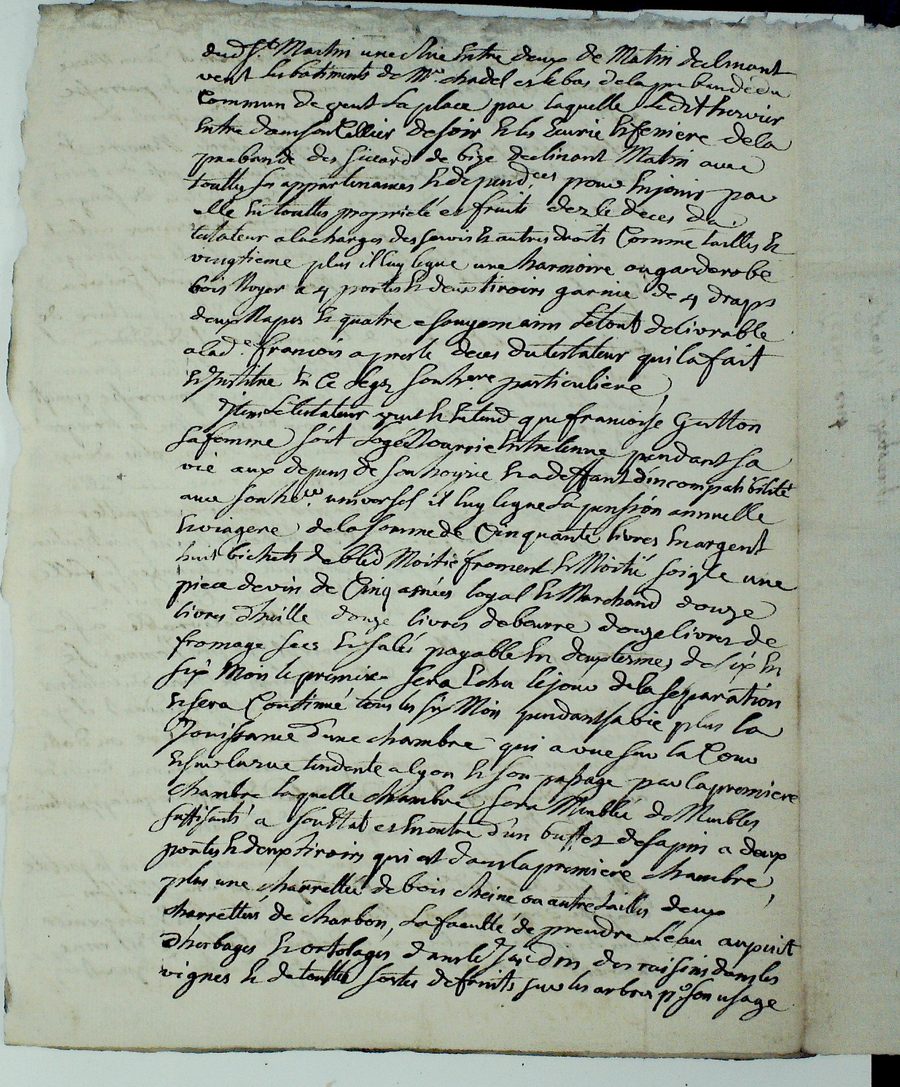 dud. st Martin une aire Entre deux de Matin declinant
vent les batiments de Mr. chadel et le bas de la prebande du
Commun de vent la place par laquelle ledit
Entre dans son Cellier de soir Et les Ecurie Et feniere de la
prebande des sicard de bize declinant Matin avec
touttes ses appartenances Et depend.ces pour En jouir par
elle En touttes propriété et fruits dez le deces du
testateur a la charges des servis Et autres droits Comme tailles Et
vingtieme plus il luy legue une harmoire ou garderobe
bois Noyer a 4 portes Et deux tiroirs garnie de 4 draps
deux Napes Et quatre essuyemains le tout delivrable
a lad.e francois apres le deces du testateur qui la fait
Et Institue En Ce legz son here particuliere
Item le testateur veut Et Entend que francoise Gutton
sa femme soit Logée Nourrie Entretenue pendant sa
vie aux depens de son hoyrie Et a deffaut d'incompatibilité
avec son he.er universel il luy legue la pension annuelle
Et viagere de la somme de Cinquante livres En argent
huit bichets de bled Moitié froment Et Moitié soigle une
piece de vin de Cinq anées loyal Et Marchand douze
livres d'huille douze livres de beurre douze livres de
fromage secs Et salés payable En deux termes de six En
six Mois le premier sera Echu le jour de la separation
Et sera Continué tous les six Mois pendant sa vie plus la
Jouissance d'une chambre qui a vue sur la Cour
Et sur la rue tendente a lyon Et son passage par la premiere
chambre laquelle chambre sera Meublée de Meubles
suffisants a son Etat et En outre d'un buffet de sapin a deux
portes Et deux tiroirs qui est dans la premiere chambre
plus une charrettée de bois cheine ou autre taillis deux
charrettées de charbon, la faculté de prendre l'eau au puit
d'herbages Et ortolages dans le Jardin des raisins dans les
vignes Et de touttes sortes de fruits sur les arbres pr. son usage